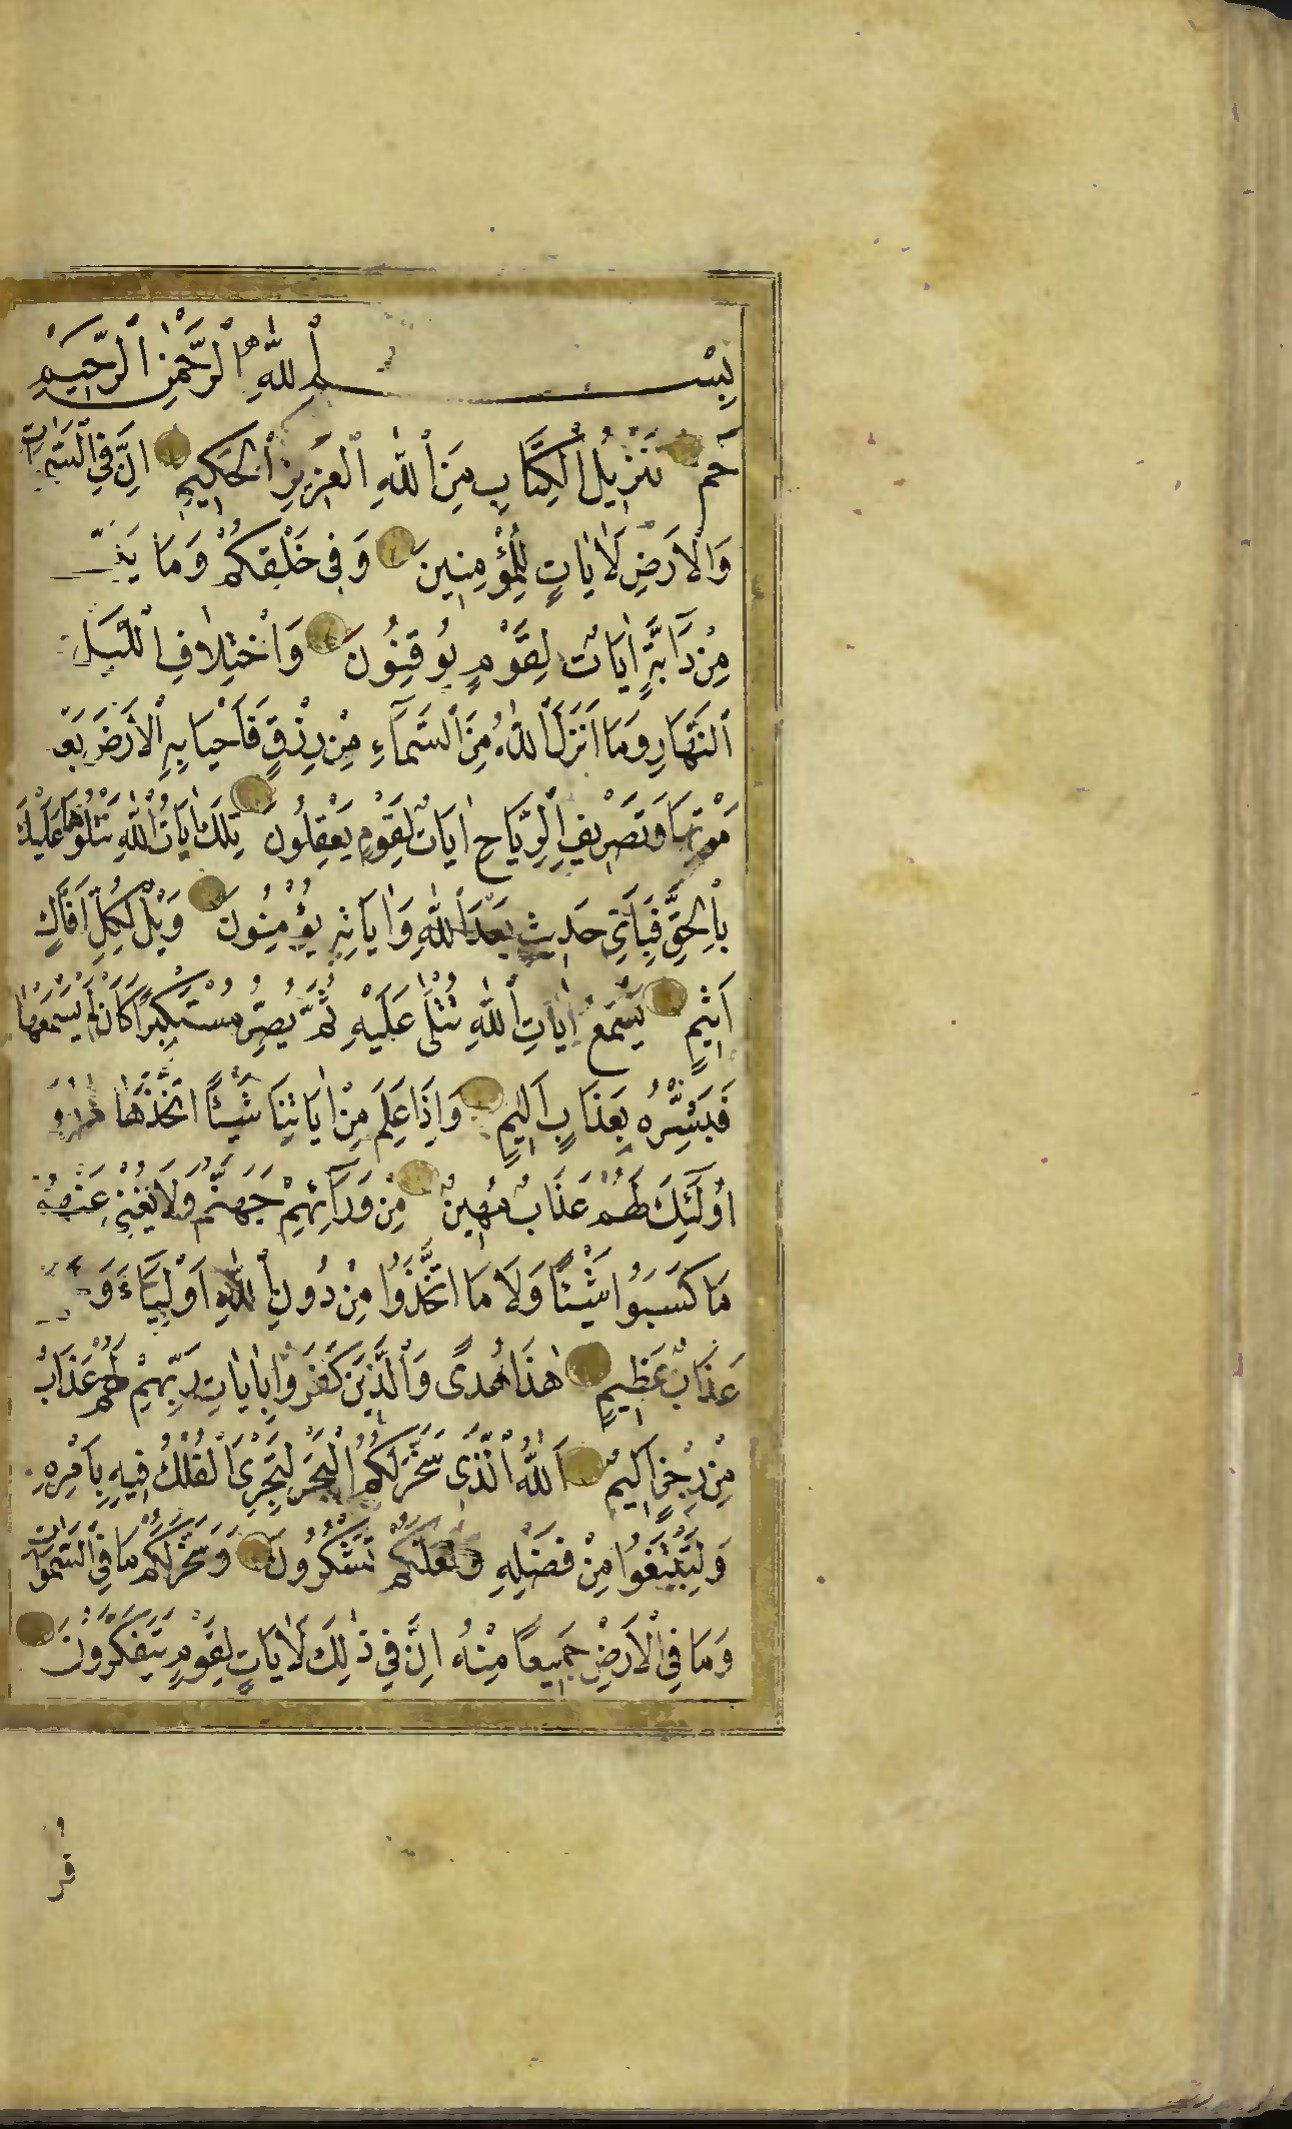 بِسْمِ اللّٰهِ الرَّحْمٰنِ الرَّحِيمِ
حٰمٓ تَنْزِيلُ الْكِتَابِ مِنَ اللّٰهِ الْعَزِيزِ الْحَكِيمِ اِنَّ فِي السَّمٰوَاتِ
وَالْاَرْضِ لَاٰيَاتٍ لِلْمُؤْمِنِينَ وَفِي خَلْقِكُمْ وَمَا يَبُثُّ
مِنْ دَٓابَّةٍ اٰيَاتٌ لِقَوْمٍ يُوقِنُونَ وَاخْتِلَافِ الَّيْلِ
النَّهَارِ وَمَا اَنْزَلَ اللّٰهُ مِنَ السَّمَٓاءِ مِنْ رِزْقٍ فَاَحْيَا بِهِ الْاَرْضَ بَعْ
مَوْتِهَا وَتَصْرِيفِ الرِّيَاحِ اٰيَاتٌ لِقَوْمٍ يَعْقِلُونَ تِلْكَ اٰيَاتُ اللّٰهِ نَتْلُوهَا عَلَيْكَ
بِالْحَقِّ فَبِاَيِّ حَدِيثٍ بَعْدَ اللّٰهِ وَاٰيَاتِهِ يُؤْمِنُونَ وَيْلٌ لِكُلِّ اَفَّاكٍ
اَثِيمٍ يَسْمَعُ اٰيَاتِ اللّٰهِ تُتْلٰى عَلَيْهِ ثُمَّ يُصِرُّ مُسْتَكْبِرًا كَاَنْ لَمْ يَسْمَعْهَا
فَبَشِّرْهُ بِعَذَابٍ اَلِيمٍ وَاِذَا عَلِمَ مِنْ اٰيَاتِنَا شَيْئًا اتَّخَذَهَا هُزُوً
اُولٰٓئِكَ لَهُمْ عَذَابٌ مُهِينٌ مِنْ وَرَٓائِهِمْ جَهَنَّمُ وَلَا يُغْنِي عَنْهُمْ
مَا كَسَبُوا شَيْئًا وَلَا مَا اتَّخَذُوا مِنْ دُونِ اللّٰهِ اَوْلِيَٓاءَ وَ
عَذَابٌ عَظِيمٌ هٰذَا هُدًى وَالَّذِينَ كَفَرُوا بِاٰيَاتِ رَبِّهِمْ لَهُمْ عَذَابٌ
مِنْ رِجْزٍ اَلِيمٌ اَللّٰهُ الَّذِي سَخَّرَ لَكُمُ الْبَحْرَ لِتَجْرِيَ الْفُلْكُ فِيهِ بِاَمْرِهِ
وَلِتَبْتَغُوا مِنْ فَضْلِهِ وَلَعَلَّكُمْ تَشْكُرُونَ وَسَخَّرَ لَكُمْ مَا فِي السَّمٰوَاتِ
وَمَا فِي الْاَرْضِ جَمِيعًا مِنْهُ اِنَّ فِي ذٰلِكَ لَاٰيَاتٍ لِقَوْمٍ يَتَفَكَّرُونَ